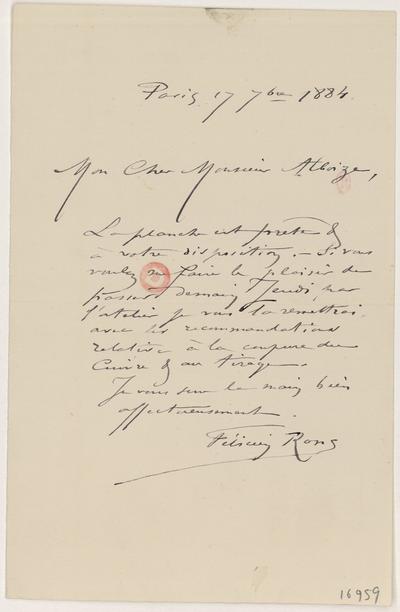 Paris 17 7bre 1884.
Mon Cher Monsieur Alboize,
La planche est prête &
à votre disposition. — Si vous
voulez me faire le plaisir de
passer demain Jeudi, par
l'atelier je vous la remettrai
avec les recommandations
relative à la coupure du
Cuivre & au tirage.
Je vous serre la main bien
affectueusement.
Félicien Rops
16959